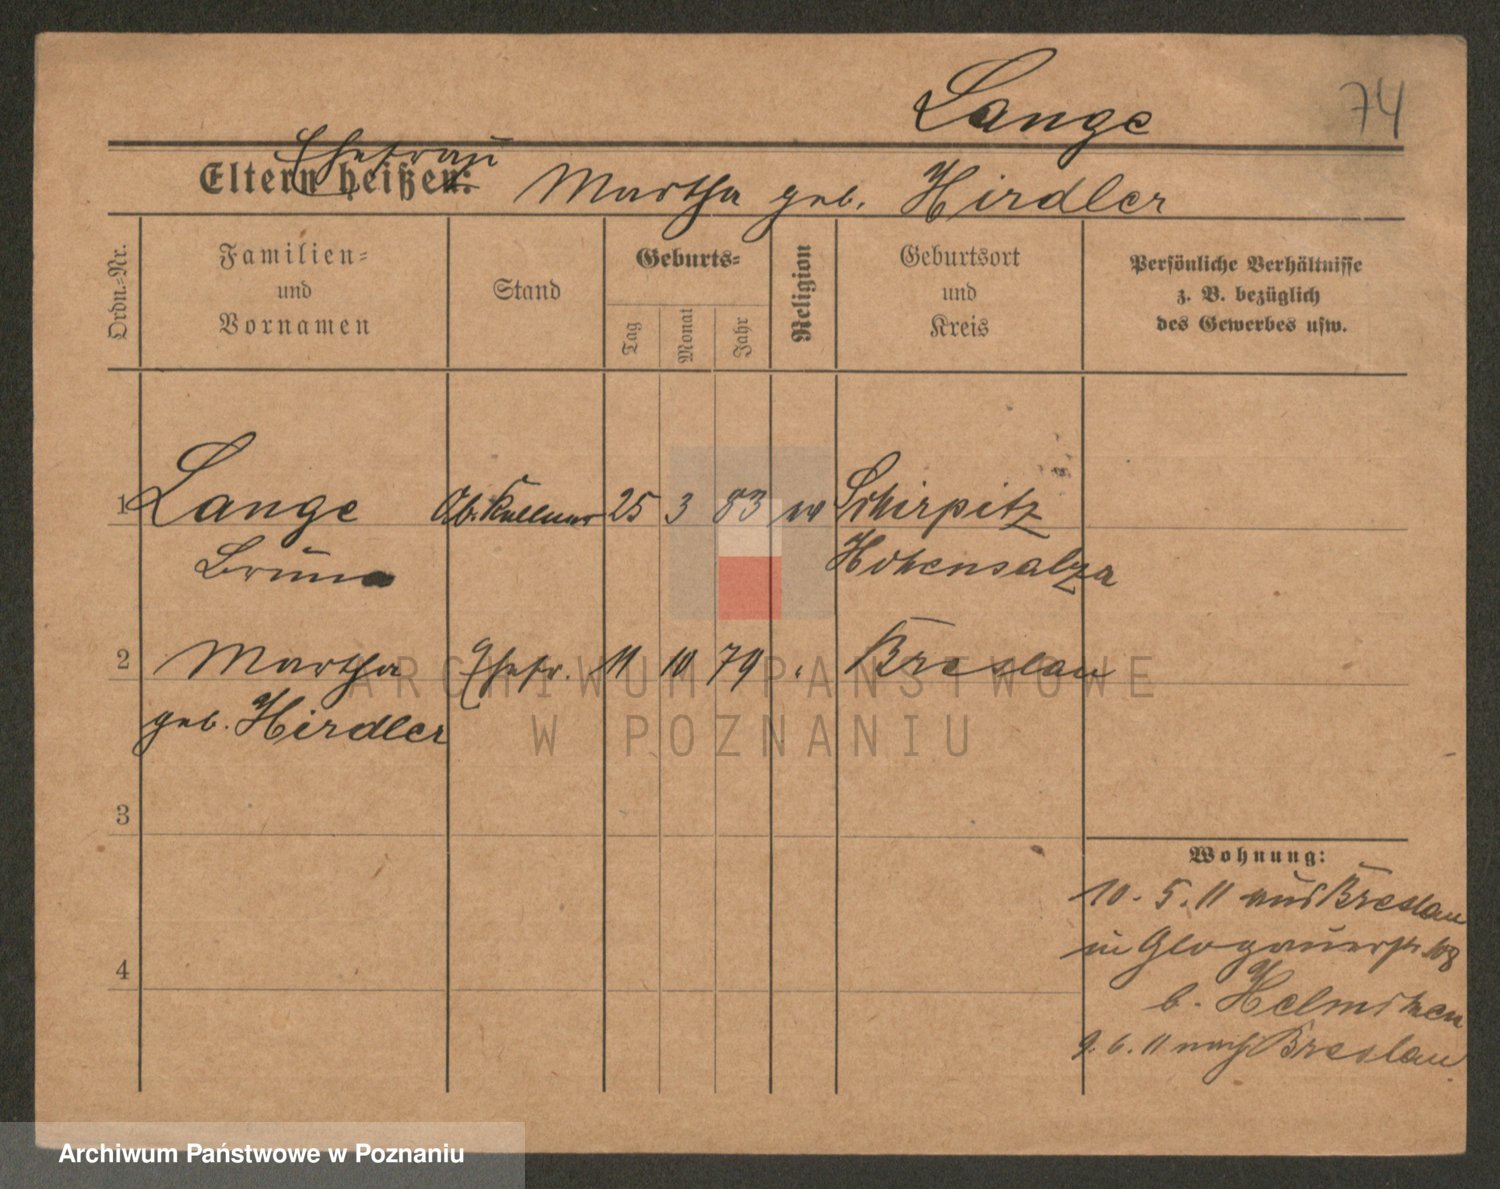 Lange
74
Ehefrau
Eltern heißen: Martha geb. Hirdler
Ordn.-Nr.
Familien-
und
Vornamen
Stand
Geburts-
Tag
Monat
Jahr
Religion
Geburtsort
und
Kreis
Persönliche Verhältnisse
z. B. bezüglich
des Gewerbes usw.
1 Lange Ob. Kellner 25 3 83 Schirpitz
Bruno Hohensalza
2 Martha Ehefr. 11 10 79 " Breslau
geb. Hirdler
3
4
Wohnung:
10. 5. 11 aus Breslau
in Glogauerstr. 108
b.
9. 6. 11 nach Breslau
ARCHIWUM PAŃSTWOWE
W POZNANIU
Archiwum Państwowe w Poznaniu